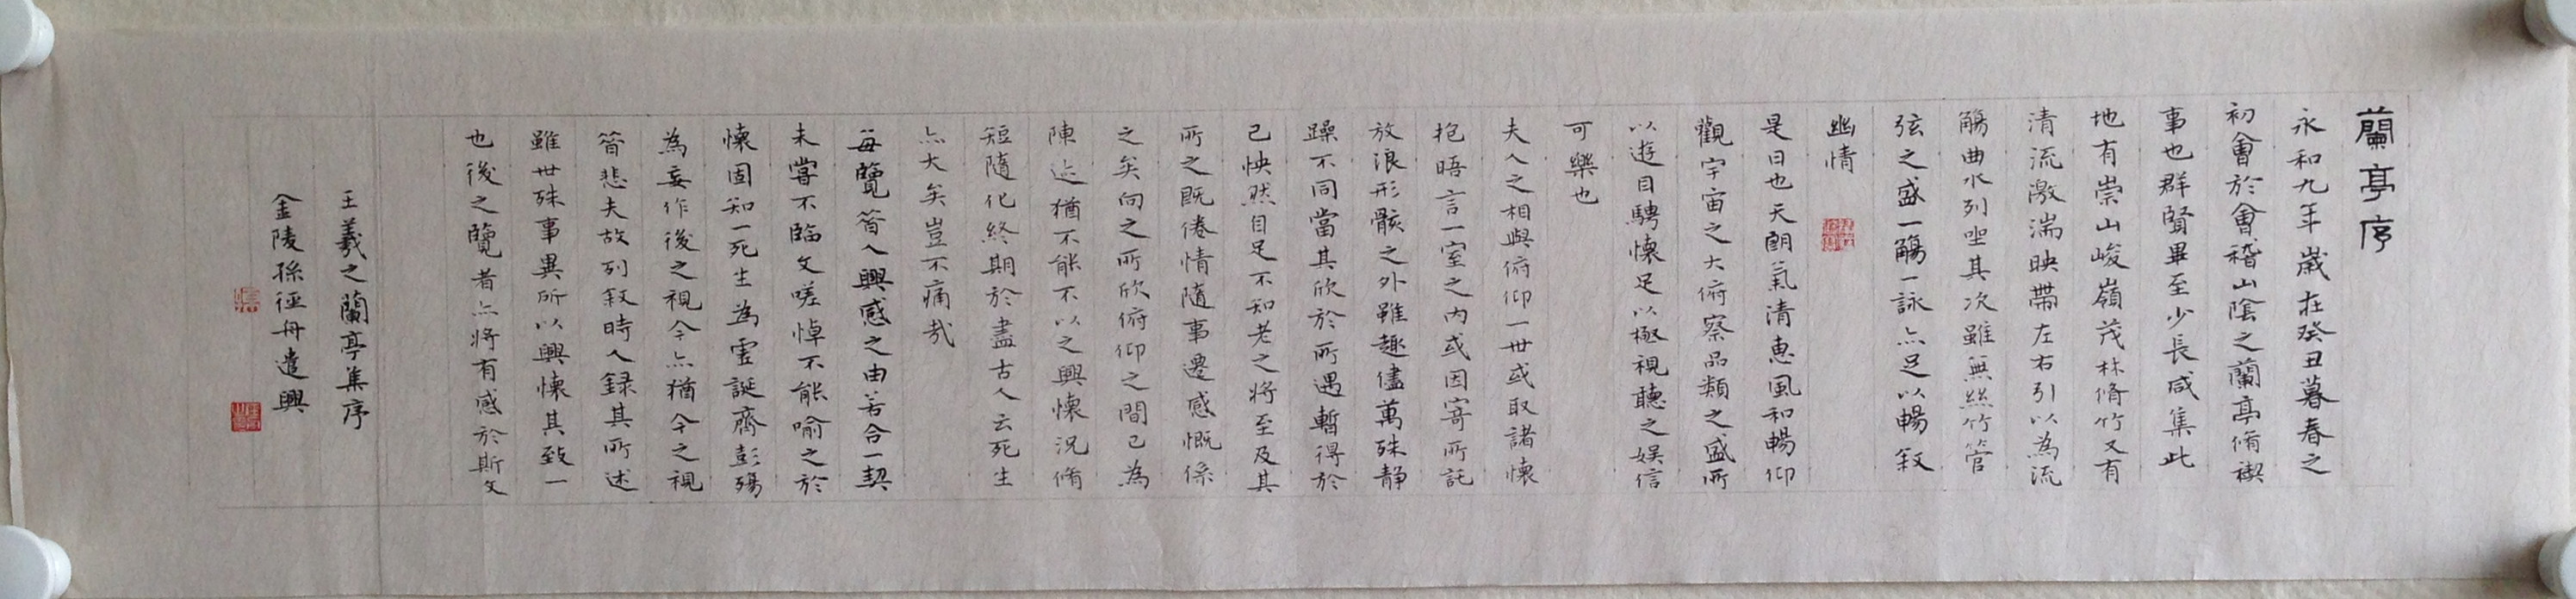 蘭亭序
永和九年歲在癸丑暮春之
初會於會稽山陰之蘭亭脩禊
事也群賢畢至少長咸集此
地有崇山峻嶺茂林脩竹又有
清流激湍映帶左右引以為流
觴曲水列坐其次雖無絲竹管
弦之盛一觴一詠亦足以暢敘
幽情
是日也天朗氣清惠風和暢仰
觀宇宙之大俯察品類之盛所
以遊目騁懷足以極視聽之娛信
可樂也
夫人之相與俯仰一世或取諸懷
抱晤言一室之內或因寄所託
放浪形骸之外雖趣儘萬殊静
躁不同當其欣於所遇暫得於
己怏然自足不知老之將至及其
所之既倦情隨事遷感慨係
之矣向之所欣俯仰之間已為
陳迹猶不能不以之興懷況脩
短隨化終期於盡古人云死生
亦大矣豈不痛哉
每覽昝人興感之由若合一契
未嘗不臨文嗟悼不能喻之於
懷固知一死生為虛誕齊彭殤
為妄作後之視今亦猶今之視
昝悲夫故列敘時人録其所述
雖世殊事異所以興懷其致一
也後之覽者亦將有感於斯文
王羲之蘭亭集序
金陵孫徑舟遣興